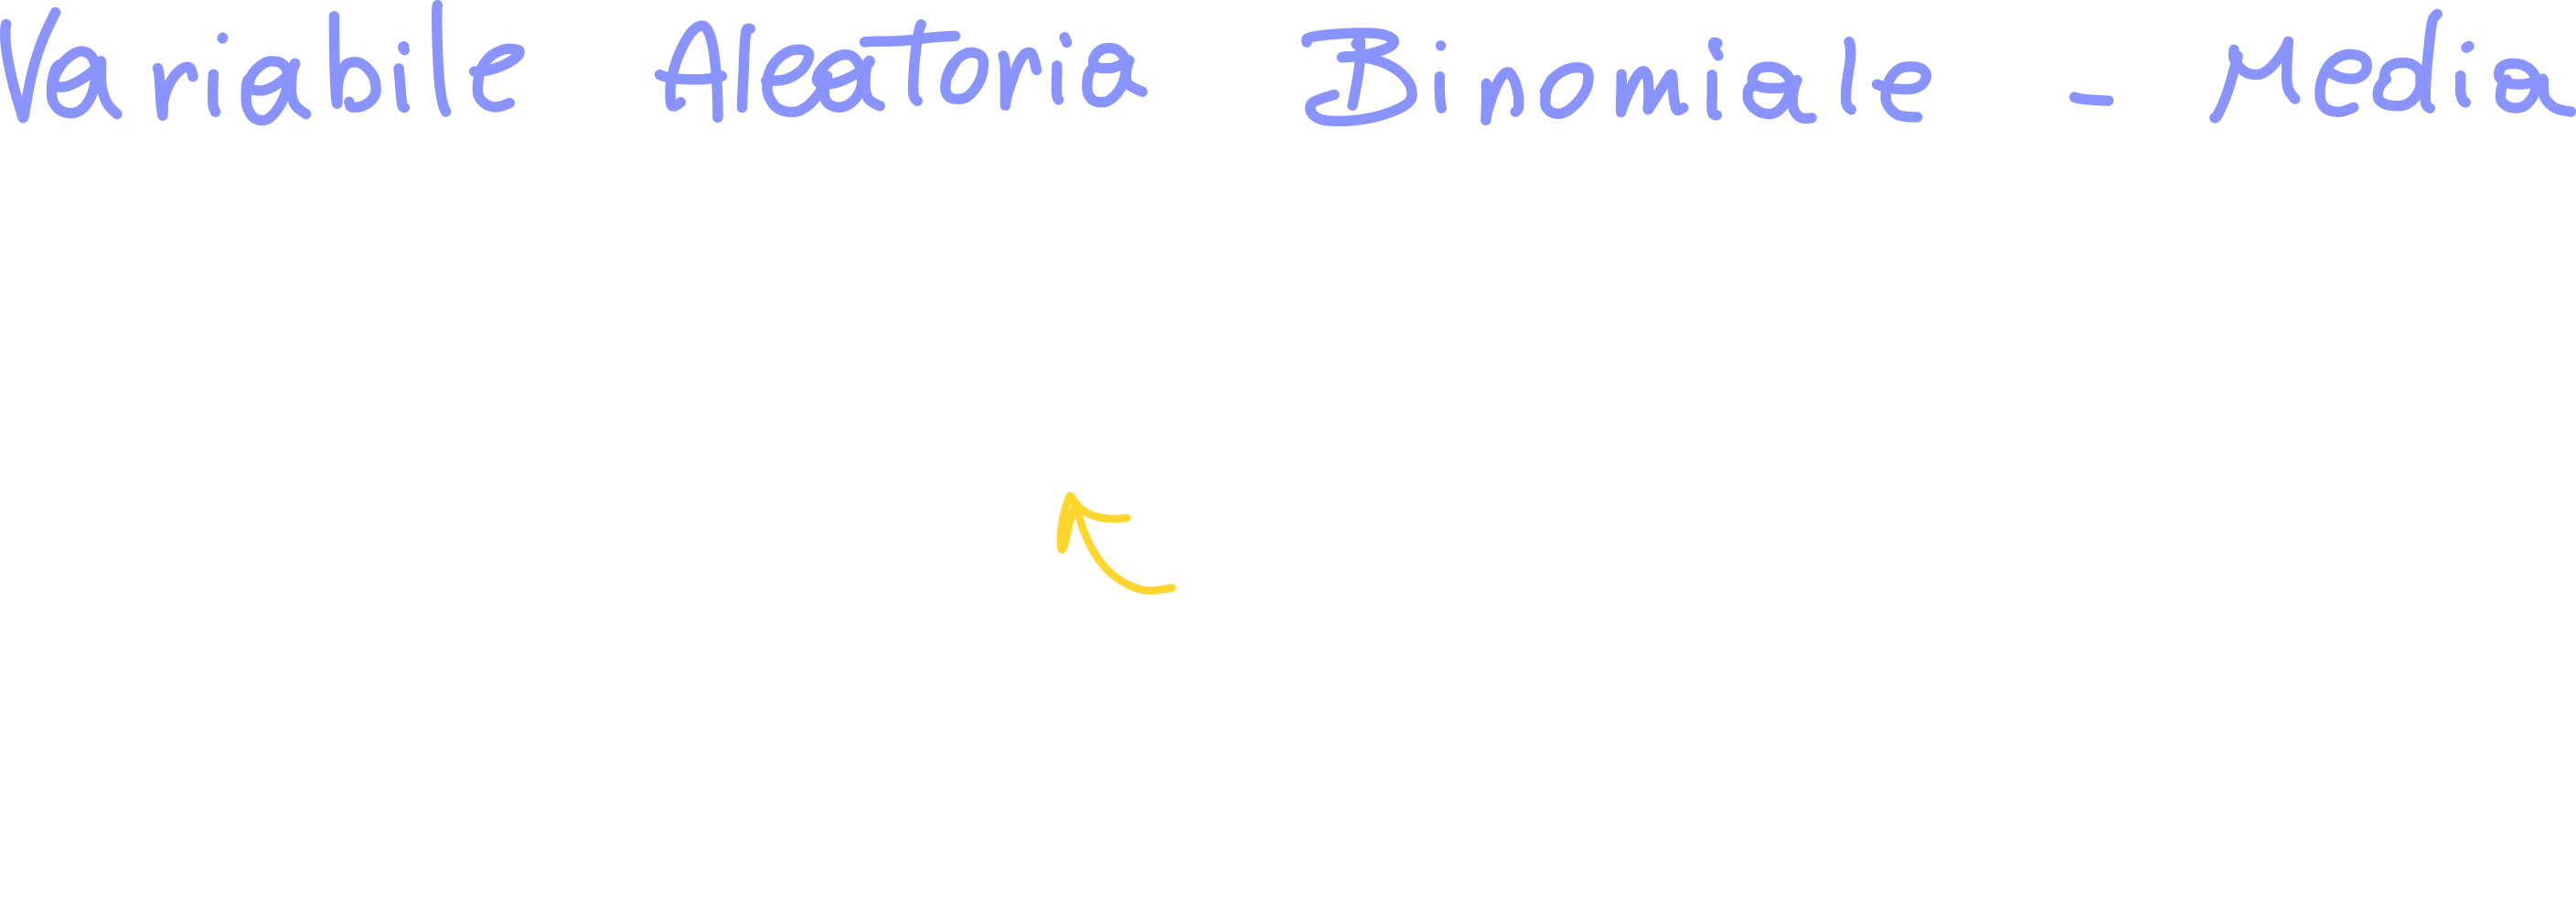 Variabile Aleatoria Binomiale - Media